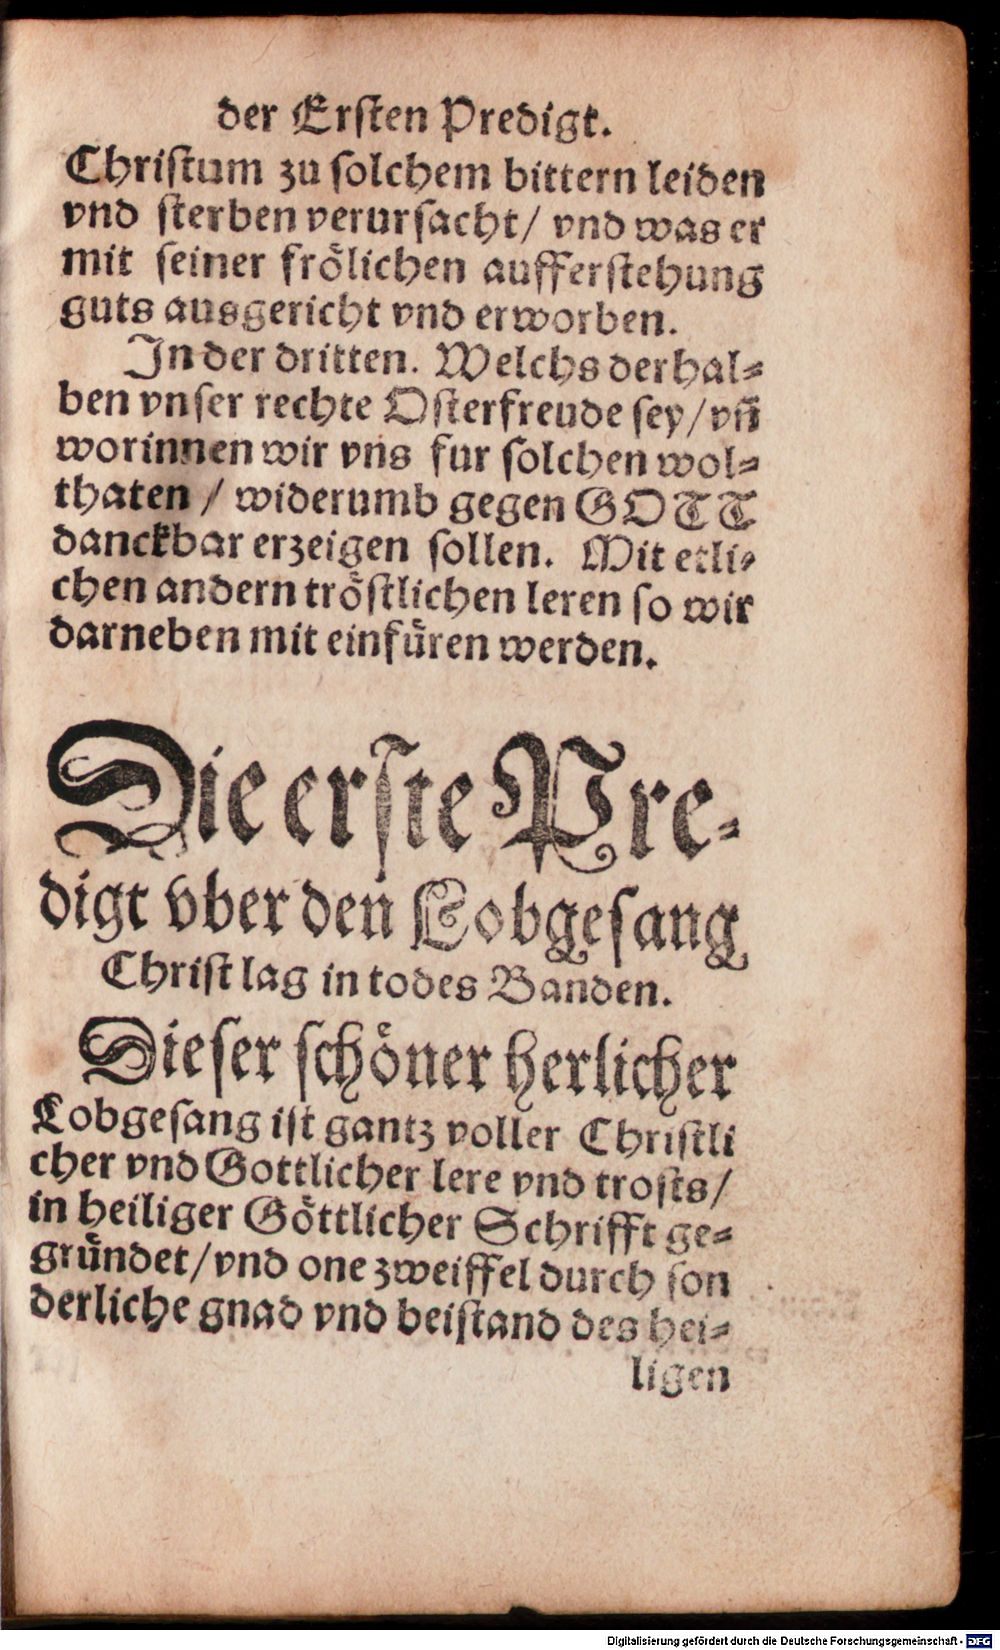 der Ersten Predigt.
Christum zu solchem bittern leiden
vnd sterben verursacht/ vnd was er
mit seiner frölichen aufferstehung
guts ausgericht vnd erworben.
In der dritten. Welchs derhal-
ben vnser rechte Osterfreude sey/ vñ
worinnen wir vns fur solchen wol-
thaten / widerumb gegen GOTT
danckbar erzeigen sollen. Mit etli-
chen andern tröstlichen leren so wir
darneben mit einfüren werden.
Die erste Pre-
digt vber den Lobgesang
Christ lag in todes Banden.
Dieser schöner herlicher
Lobgesang ist gantz voller Christli
cher vnd Gottlicher lere vnd trosts/
in heiliger Göttlicher Schrifft ge-
gründet/ vnd one zweiffel durch son
derliche gnad vnd beistand des hei-
ligen
Digitalisierung gefördert durch die Deutsche Forschungsgemeinschaft - DFG